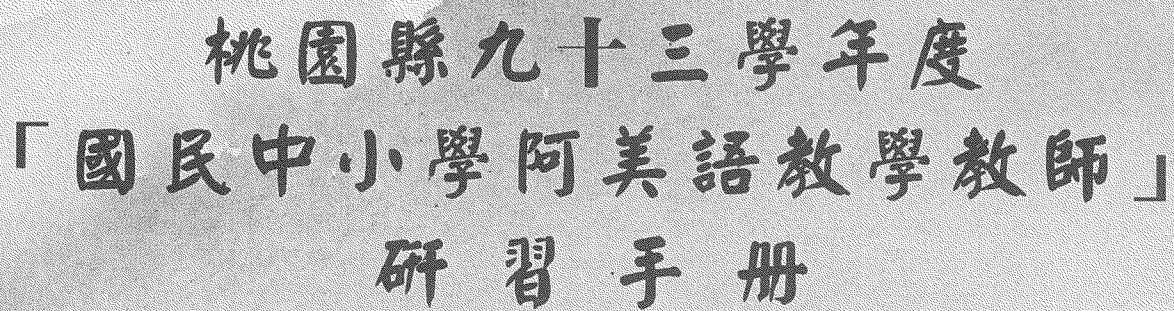 桃園縣九十三學年度
「國民中小學阿美語教學教師」
研習手冊